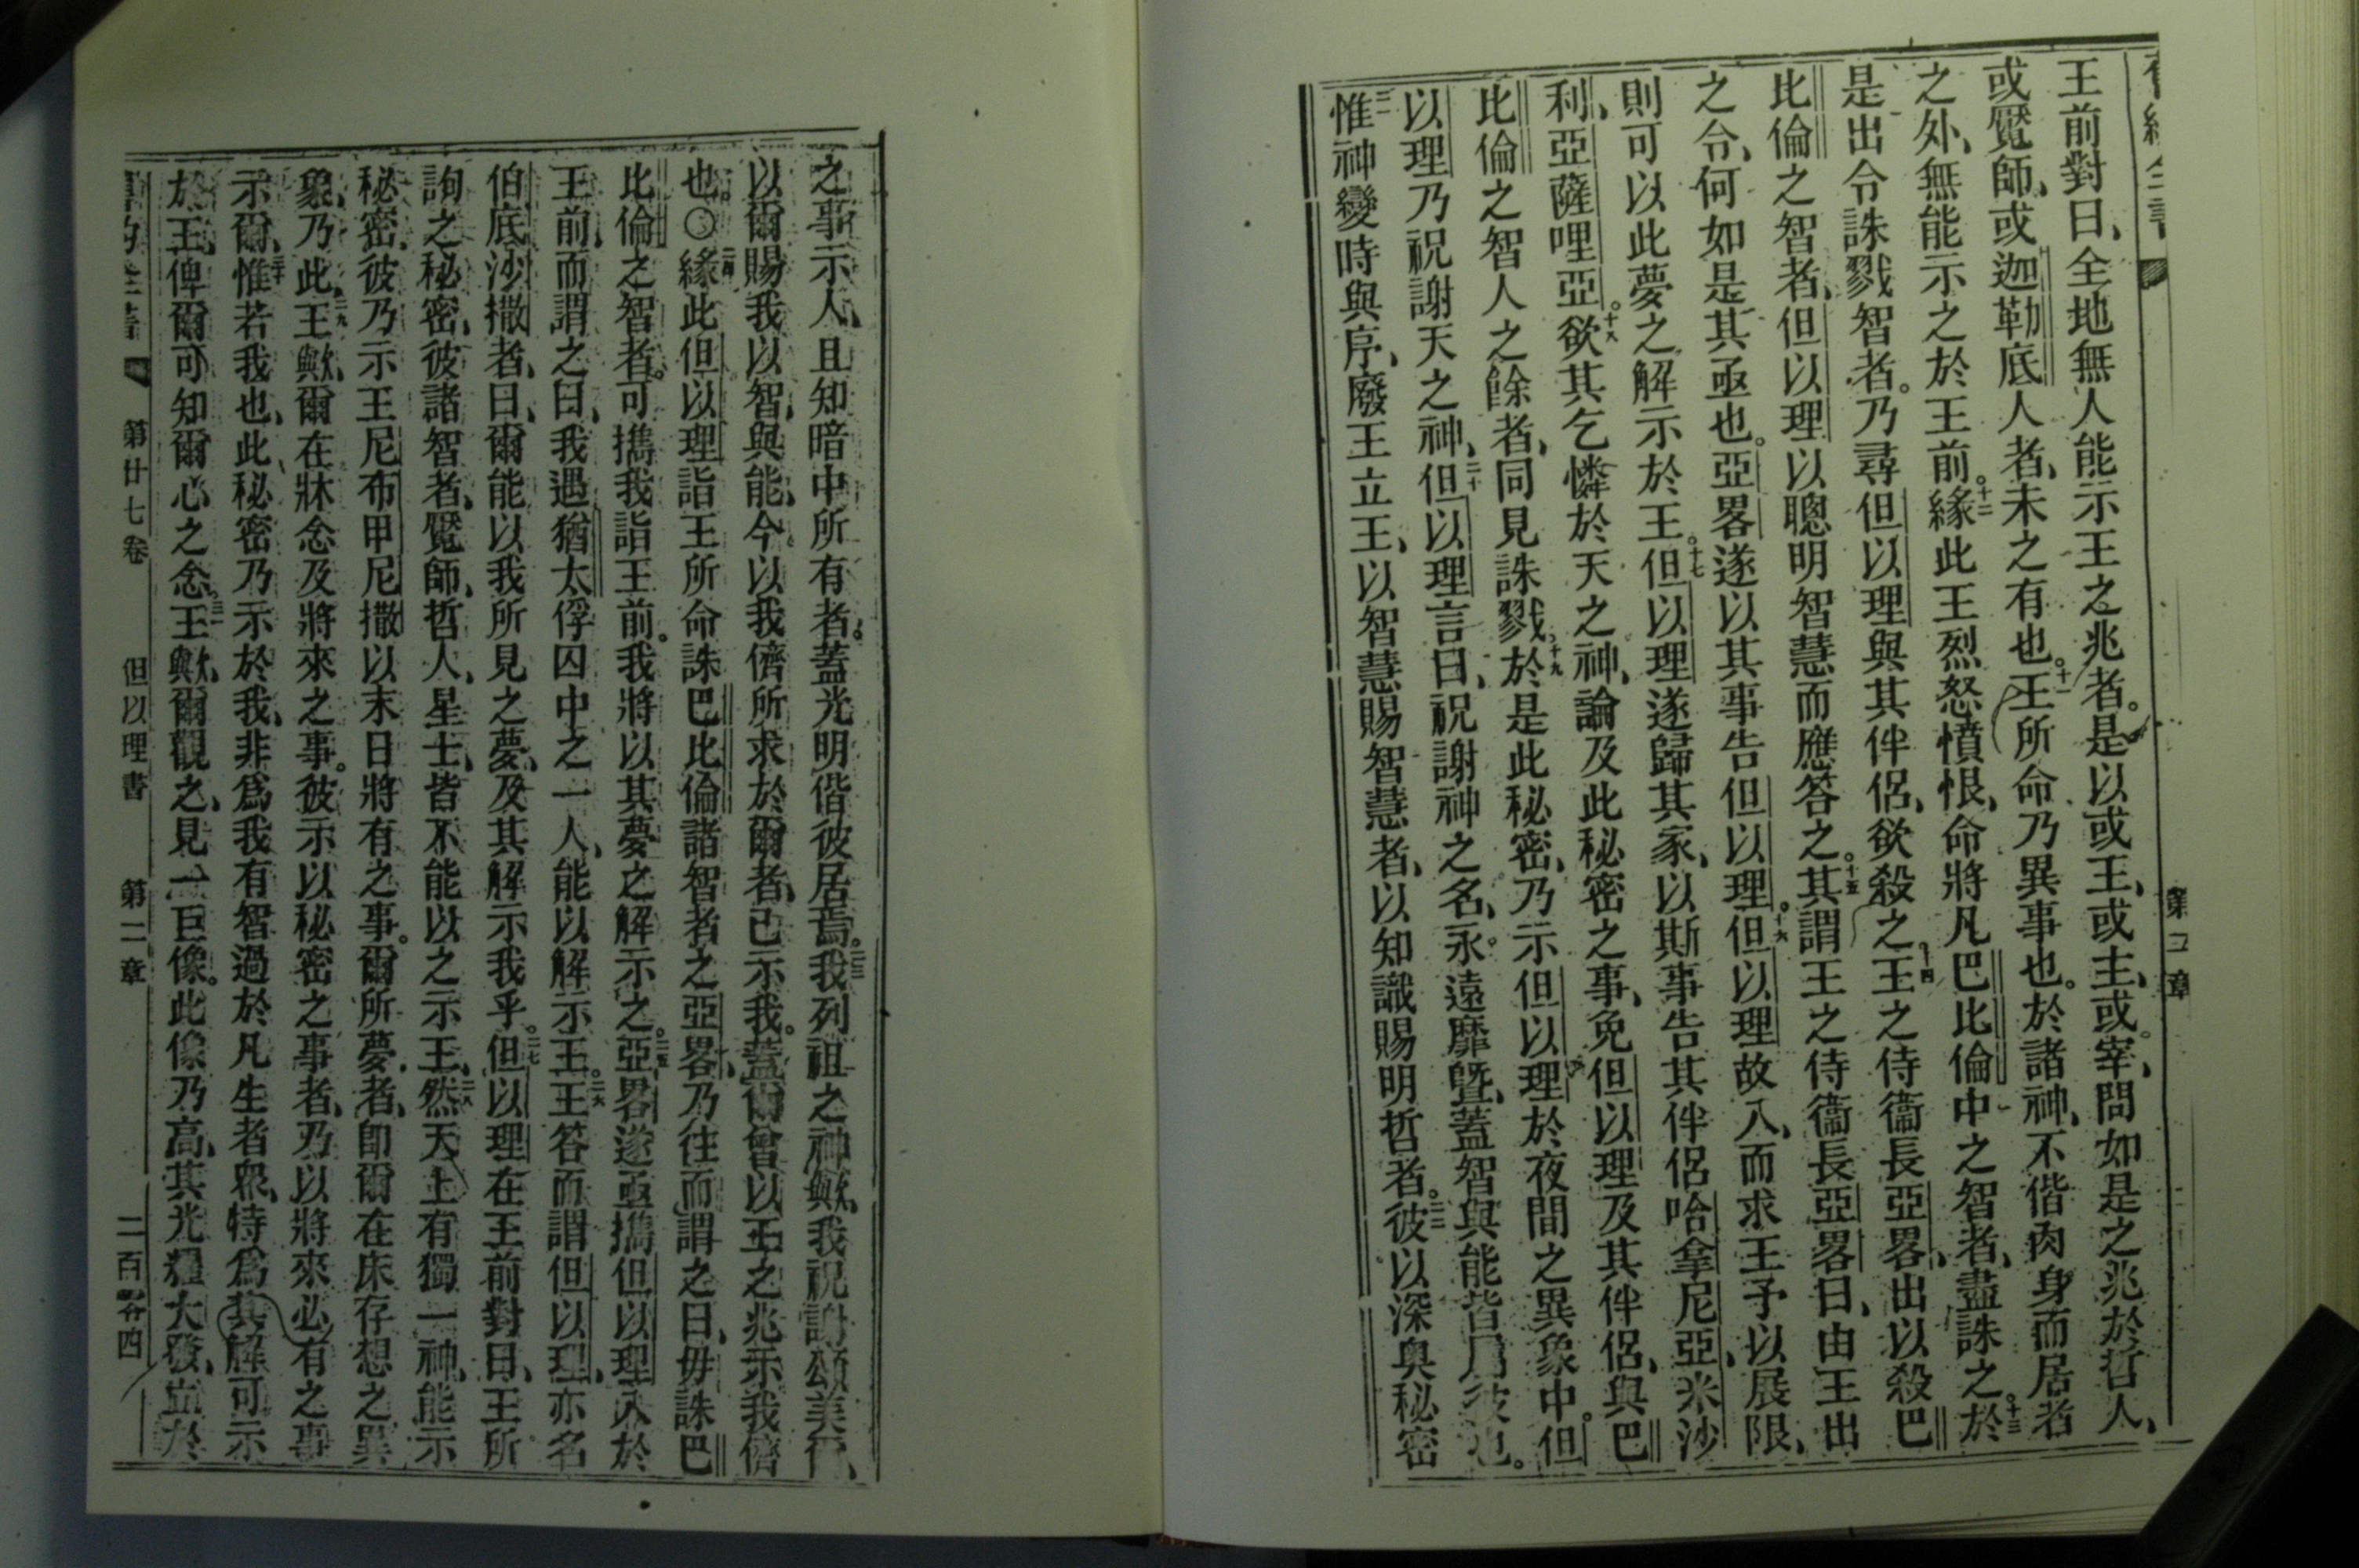 第二章
王前對曰、全地無人能示王之兆者。是以或王、或主、或宰、問如是之兆於哲人、
或魘師、或迦勒底人者、未之有也。十一王所命乃異事也。於諸神、不偕肉身而居者
之外、無能示之於王前。十二緣此王烈怒憤恨、命將凡巴比倫中之智者、盡誅之。十三於
是出令誅戮智者。乃尋但以理與其伴侶、欲殺之。十四王之侍衞長亞畧、出以殺巴
比倫之智者、但以理以聰明智慧而應答之。十五其謂王之侍衞長亞畧曰、由王出
之令、何如是其亟也。亞畧遂以其事告但以理。十六但以理故入、而求王予以展限、
則可以此夢之解示於王。十七但以理遂歸其家、以斯事告其伴侶哈拿尼亞、米沙
利、亞薩哩亞。十八欲其乞憐於天之神、論及此秘密之事、免但以理及其伴侶、與巴
比倫之智人之餘者、同見誅戮。十九於是此秘密、乃示但以理於夜間之異象中。但
以理乃祝謝天之神、二十但以理言曰、祝謝神之名、永遠靡曁、蓋智與能皆屬彼也。
惟神變時與序、廢王立王、以智慧賜智慧者、以知識賜明哲者。二二彼以深奥秘密
之事示人、且知暗中所有者。蓋光明偕彼居焉。二三我列祖之神歟、我祝謝頌美爾、
以爾賜我以智、與能、今以我儕所求於爾者、已示我。蓋爾曾以王之兆示我儕
也〇二四緣此但以理詣王所命誅巴比倫諸智者之亞畧、乃往而謂之曰、毋誅巴
比倫之智者。可擕我詣王前。我將以其夢之解示之。二五亞畧遂亟擕但以理入於
王前、而謂之曰、我遇猶太俘囚中之一人、能以解示王。二六王答而謂但以理、亦名
伯底沙撒者、曰、爾能以我所見之夢、及其解示我乎。二七但以理在王前對曰、王所
詢之秘密、彼諸智者、魘師、哲人、星士、皆不能以之示王、二八然天上有獨一神、能示
秘密、彼乃示王尼布甲尼撒以末日將有之事。爾所夢者、卽爾在床存想之異
象、乃此、二九王歟、爾在牀念及將來之事。彼示以秘密之事者、乃以將來必有之事
示爾、三十惟若我也、此秘密乃示於我、非爲我有智過於凡生者衆、特爲其解可示
於王、俾爾可知爾心之念。三一王歟、爾觀之、見一巨像。此像乃高、其光耀大發、立於
第廿七卷 但以理書 第二章 二百零四